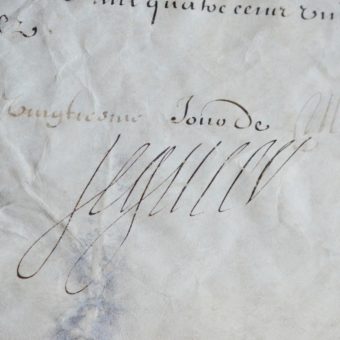 mil quatre cens vin
Vingtiesme Jour de M
Seguier